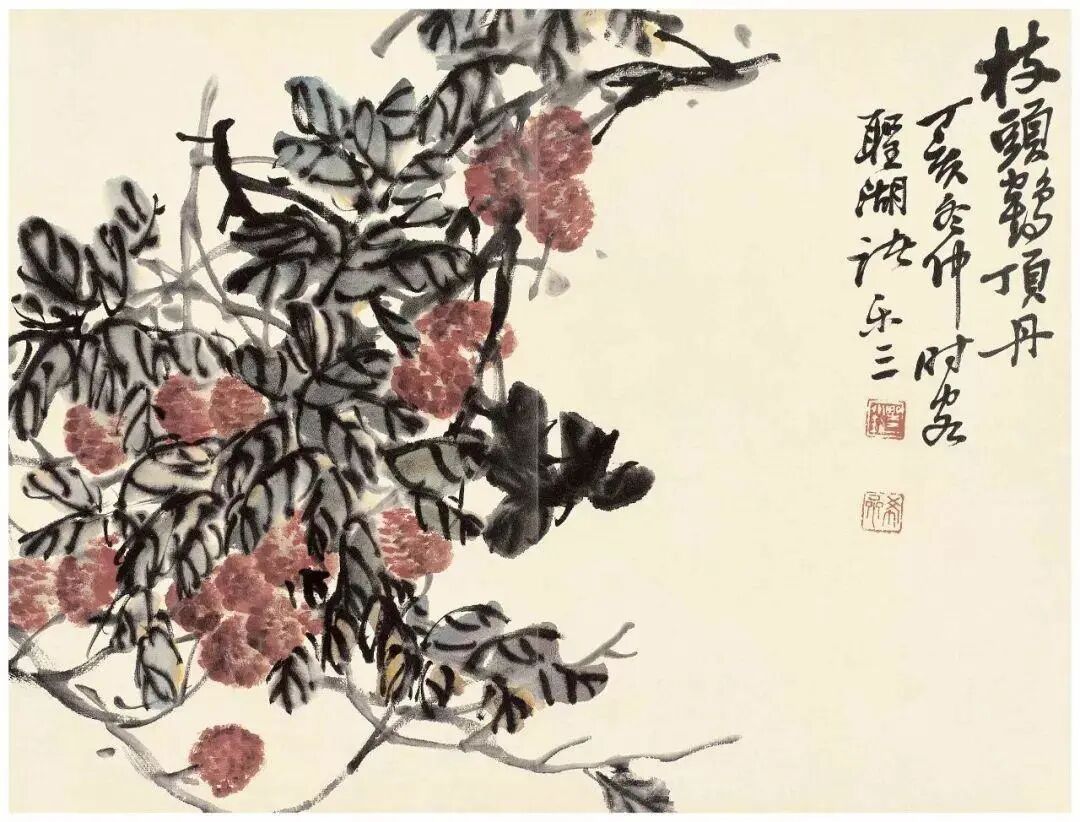 枝頭鶴頂丹
丁亥冬仲时客
聖湖诸乐三